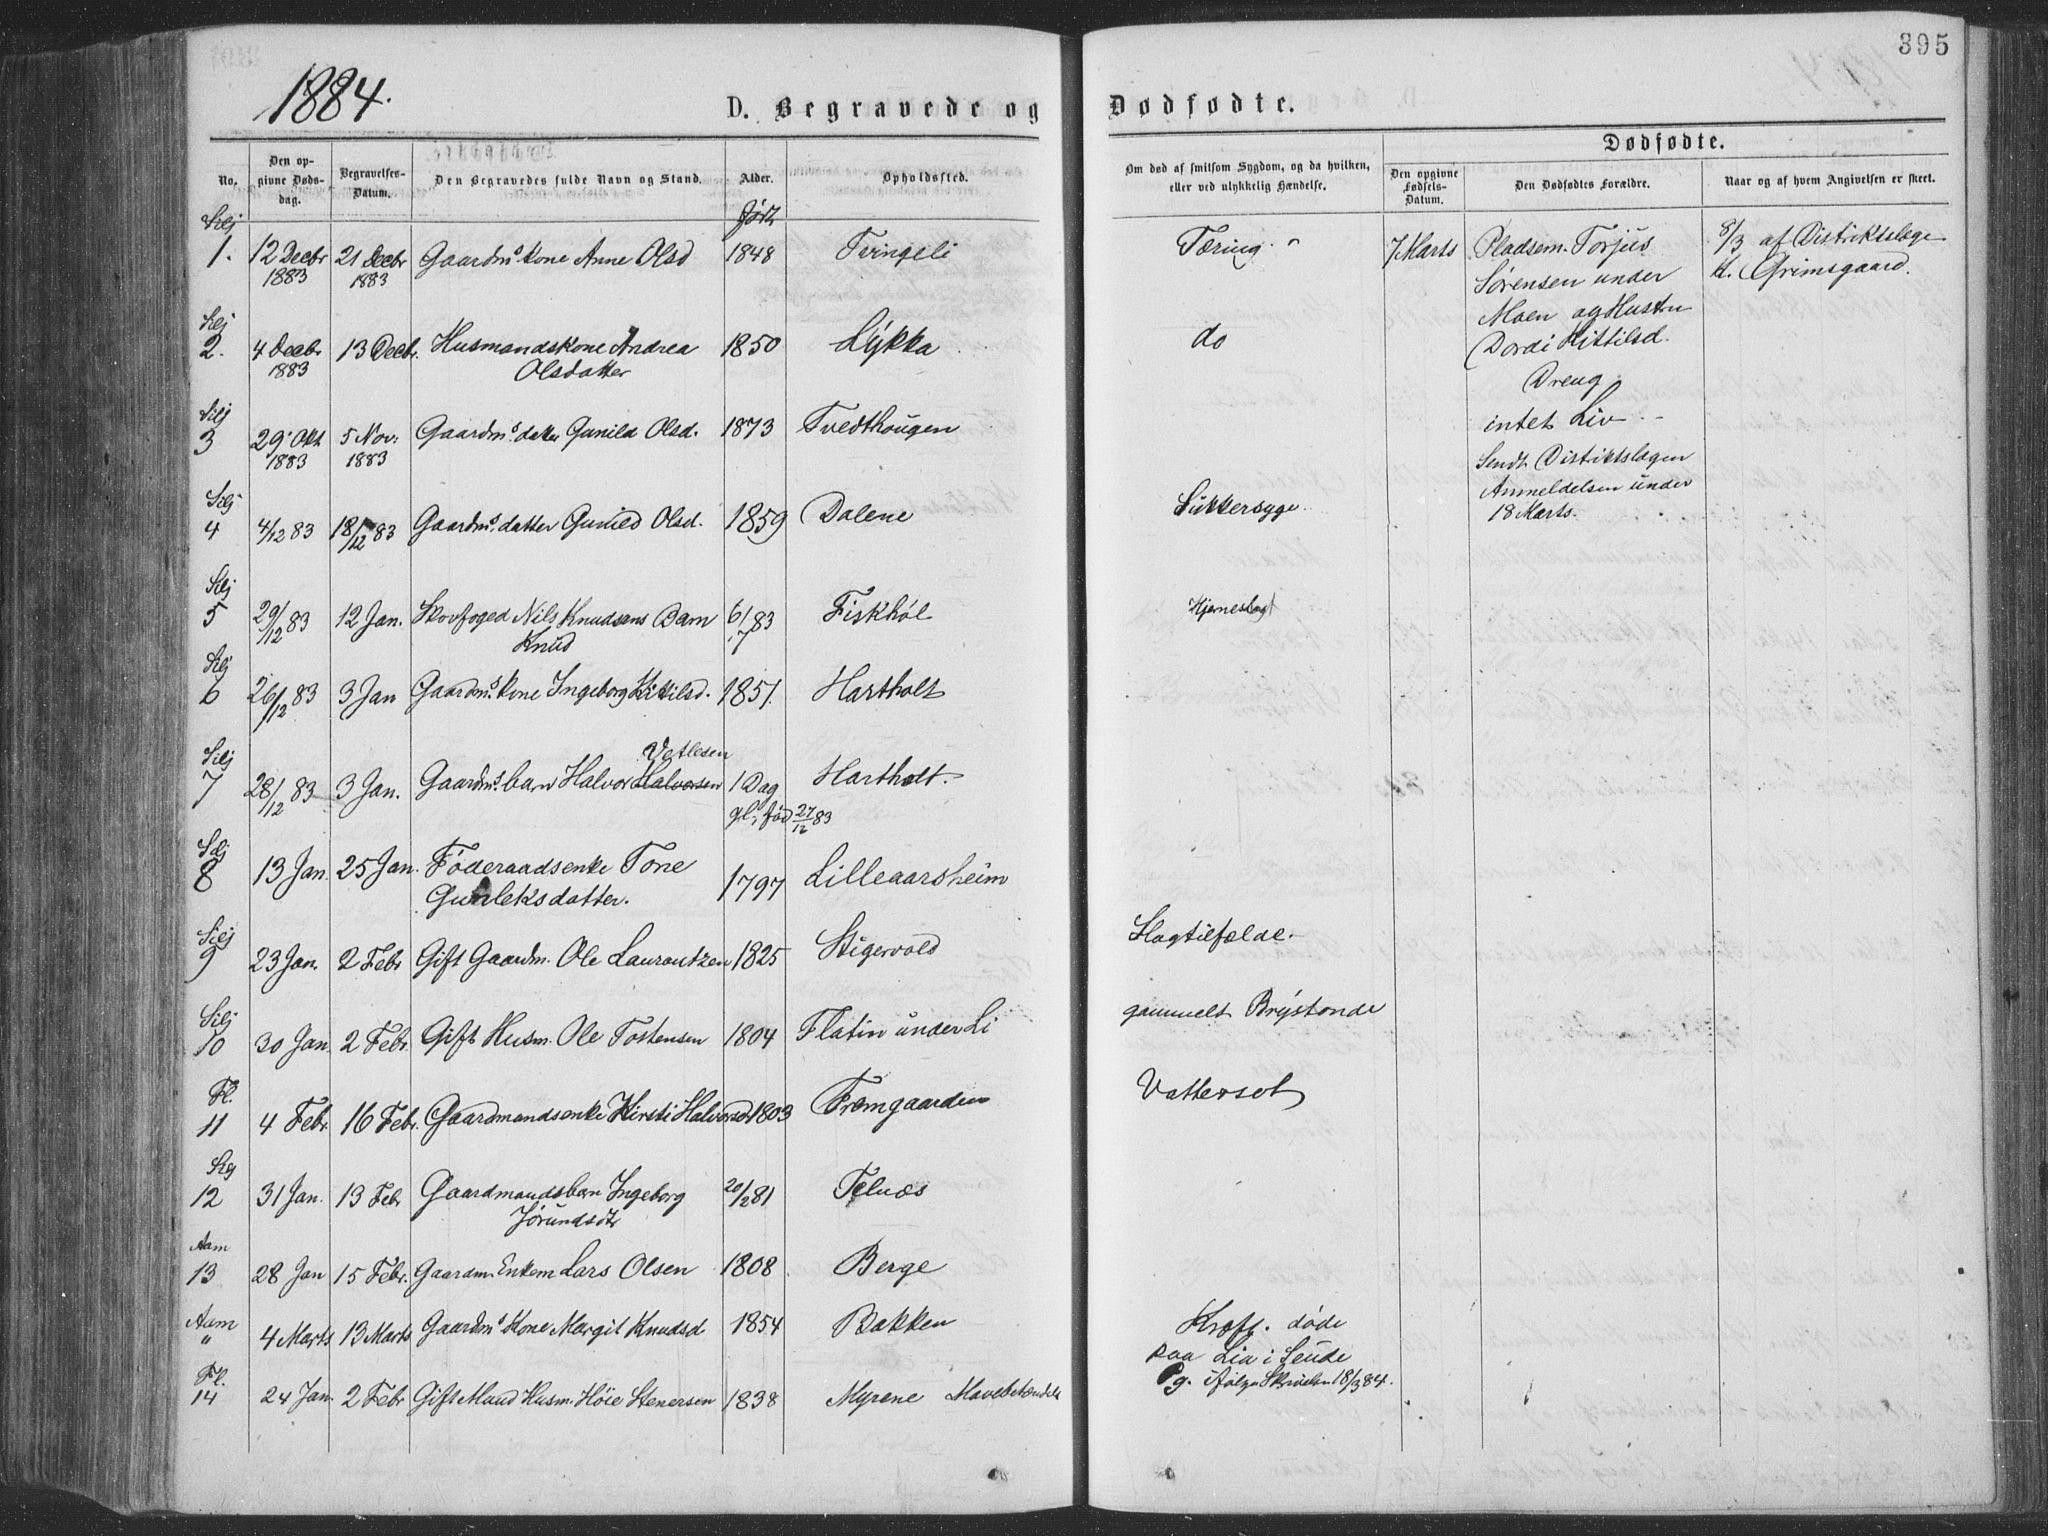 395
1884.
D. Begravede og Dødfødte.
No.
Den opgivne Dødsdag.
Begravelses-Datum.
Den Begravedes fulde Navn og Stand.
Alder.
Opholdssted.
Om død af smitsom Sygdom, og da hvilken, eller ved ulykkelig Hændelse.
Dødfødte.
Den opgivne Fødsels-Datum.
Den Dødfødtes Forældre.
Naar og af hvem Angivelsen er skeet.
Silj 1. 12 Decbr 1883 21 Decbr 1883 Gaardms Kone Anne Olsd 1848 Tvingeli Tæring
Silj 2. 4 Decbr 1883 13 Decbr. Husmandskone Andrea Olsdatter 1850 Lykka do
Silj 3 29 Okt 1883 5 Nov: 1883 Gaardms. datter Gunild Olsd. 1873 Tvedthougen
Silj 4 4/12 83 18/12 83 Gaardms. datter Gunild Olsd. 1859 Dalene Sukkersyge.
Silj 5 29/12 83 12 Jan. Skovfoged Nils Knudsens Barn Knud 6/7 83 Fiskhøl Hjerneslag
Silj 6 26/12 83 3 Jan Gaardms. Kone Ingeborg Kittilsd. 1851. Hartholt
Silj 7 28/12 83 3 Jan. Gaardms. barn Halvor Halvorsen Vetlesen 1 Dag gl., fød 27/12 83 Hartholt.
Silj 8 13 Jan. 25 Jan. Føderaadsenke Tone Gunleksdatter. 1797 Lilleaarsheim
Silj 9 23 Jan. 2 Febr Gift Gaardm. Ole Laurantzen 1825 Stigervold Slagtilfælde.
Silj 10 30 Jan. 2 Febr. Gift Husm. Ole Tostensen 1804 Flatin under Li gammelt Brystonde
Fl. 11 4 Febr. 16 Febr. Gaardmandsenke Kirsti Halvorsd 1803 Fremgaarden Vattersot
12 31 Jan. 13 Febr Gaardmandsbarn Ingeborg Jørundsdtr 20/2 81 Telnæs
Aam 13 28 Jan 15 Febr. Gaardm. Enkem Lars Olsen 1808 Berge
Aam " 4 Marts 13 Marts Gaardms Kone Margit Knudsd 1854 Bakken Kræft. døde paa Lia i Seude Pg. ifølge Skrivelse 18/3 84.
Fl. 14 24 Jan. 2 Febr Gift Mand Husm. Høie Stenersen 1838 Myrene Mavebetændelse
7 Marts Pladsem. Torjus
Sørensen under
Moen og Hustru
Dordi Kittilsd.
Dreng
intet Liv
Sendt Distriktslægen
Anmeldelsen under
18 Marts.
8/3 af Distriktslæge
H. Grimsgaard.